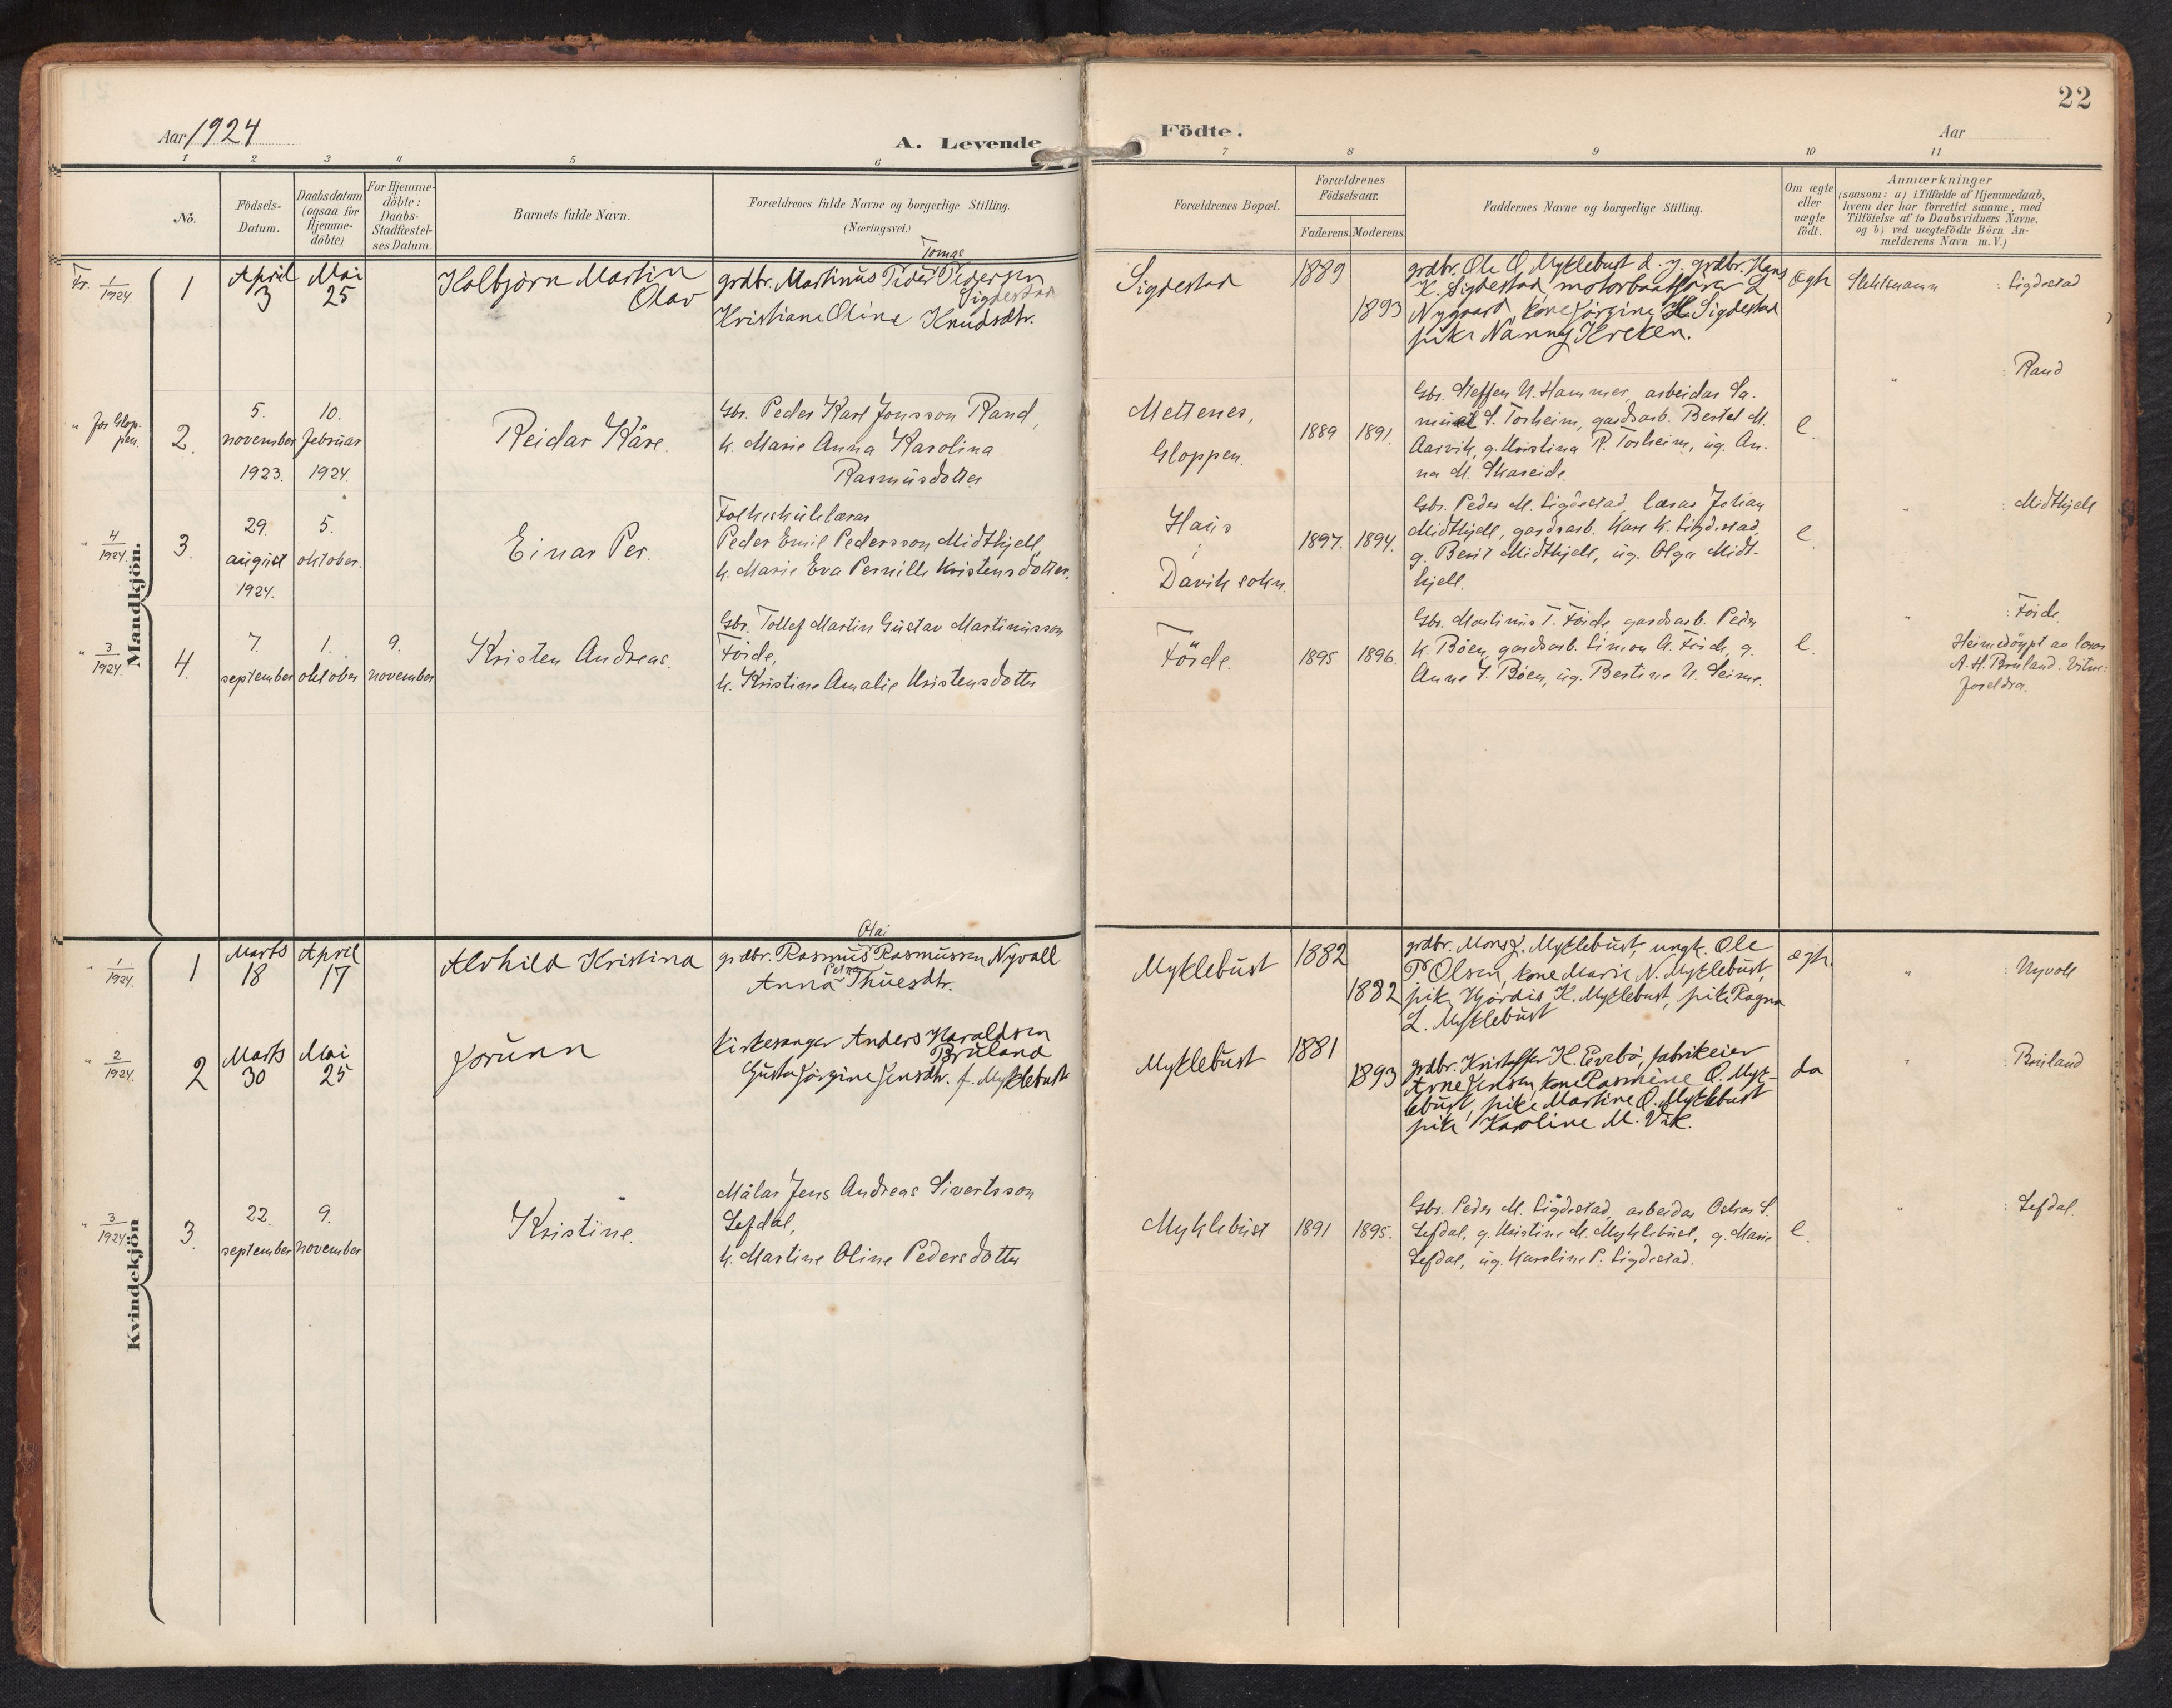 22
Aar 1924
A. Levende
Födte.
Aar
1 2 3 4 5 6 7 8 9 10 11
No.
Födsels-
Datum.
Daabsdatum
(ogsaa for
Hjemme-
döbte)
For Hjemme-
döbte:
Daabs-
Stadfæstel-
ses Datum.
Barnets fulde Navn.
Forældrenes fulde Navne og borgerlige Stilling.
(Næringsvei.)
Forældrenes Bopæl.
Forældrenes
Födselsaar.
Faderens. Moderens.
Faddernes Navne og borgerlige Stilling.
Om ægte
eller
uægte
födt.
Anmærkninger
(saasom: a) i Tilfælde af Hjemmedaab,
hvem der har forrettet samme, med
Tilföielse af to Daabsvidners Navne.
og b) ved uægtefödte Börn An-
melderens Navn m.V.)
Mandkjön.
Fr. 1/1924
1
April
3
Mai
25
Kolbjörn Martin
Olav
Tomas
grdbr. Martinus Peder Pedersen
Sigdestad
Kristiane Oline Knudsdtr.
Sigdestad
1889
1893
grdbr. Ole O. Myklebust d. y. grdbr. Hans
K. Sigdestad, motorbaatförer L
Nygaard, kone Jörgine H. Sigdestad
pike Nanny Kreken.
ægte
Sigdestad
" for Glop-
pen.
2.
5.
november
1923.
10.
februar
1924.
Reidar Kåre.
Gbr. Peder Karl Jonsson Rand,
k. Marie Anna Karolina
Rasmusdotter
Mettenes,
Gloppen.
1889 1891.
Gbr. Steffen N. Hammer, arbeidar Sa-
muel S. Torheim, gardsarb. Bertel M.
Aarvik, g. Kristina R. Torheim, ug. An-
na M. Skareide.
e.
" : Rand
" 4/1924
3.
29.
august
1924.
5.
oktober.
Einar Per.
Folkeskulelærar
Peder Emil Pedersson Midthjell,
k. Marie Eva Pernille Kristensdotter.
Haus
Davik sokn.
1897. 1894.
Gbr. Peder M. Sigdestad, lærar Johan
Midthjell, gardsarb. Kare K. Sigdestad,
g. Berit Midthjell, ug. Olga Midt-
hjell.
e.
" : Midthjell
" 3/1924
4.
7.
september
1.
oktober
9.
november
Kristen Andreas.
Gbr. Tollef Martin Gustav Martinusson
Förde,
k. Kristine Amalie Kristensdotter
Förde.
1895 1896.
Gbr. Martinus T. Förde, gardsarb. Peder
K. Böen, gardsarb. Simon A. Förde, g.
Anne J. Böen, ug. Bertine N. Seime.
e.
" : Förde.
Heimedöypt av lærar
A. H. Bruland. Vitne:
foreldra.
Kvindekjön
" 1/1924.
1
Marts
18
April
17
Alvhild Kristina
Olai
grdbr. Rasmus Rasmussen Nyvoll
Petra
Anna Thuesdtr.
Myklebust
1882
1882
grdbr. Mons J. Myklebust, ungk. Ole
P. Olsen, kone Marie N. Myklebust,
pik. Hjördis K. Myklebust, pike Ragna
L. Myklebust
ægte.
" : Nyvoll
" 2/1924.
2
Marts
30
Mai
25
Jorunn
Kirkesanger Anders Haraldsen
Bruland
Gusta Jörgine Jensdtr. f. Myklebust
Myklebust
1881
1893
grdbr. Kristoffer K. Evebö, fabrikeier
Arne Jensen, kone Rasmine O. Myk-
lebust, pike Martine O. Myklebust
pike Karoline M. Vik.
do
" : Bruland
" 3/1924.
3.
22.
september
9.
november
Kristine.
Målar Jens Andreas Sivertsson
Lefdal,
k. Martine Oline Pedersdotter
Myklebust
1891 1895.
Gbr. Peder M. Sigdestad, arbeidar Oskar S.
Lefdal, g. Kristine M. Myklebust, g. Marie
Lefdal, ug. Karoline P. Sigdestad.
e.
" : Lefdal.